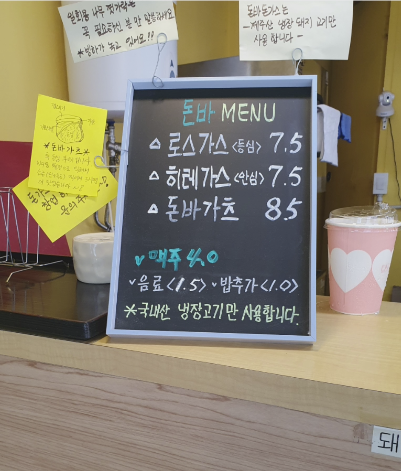 일회용 나무 젓가락은
꼭 필요하신 분만 말씀하세요
*빙하가 녹고 있어요!!
돈바돈가스는
-제주산 냉장 돼지고기만
사용합니다-
*돈바가츠*
문의주
돈바 MENU
△ 로스가스 <등심> 7.5
△ 히레가스 <안심> 7.5
△ 돈바가츠 8.5
v 맥주 4.0
v 음료 <1.5> v 밥추가 <1.0>
*국내산 냉장고기만 사용합니다.
돼